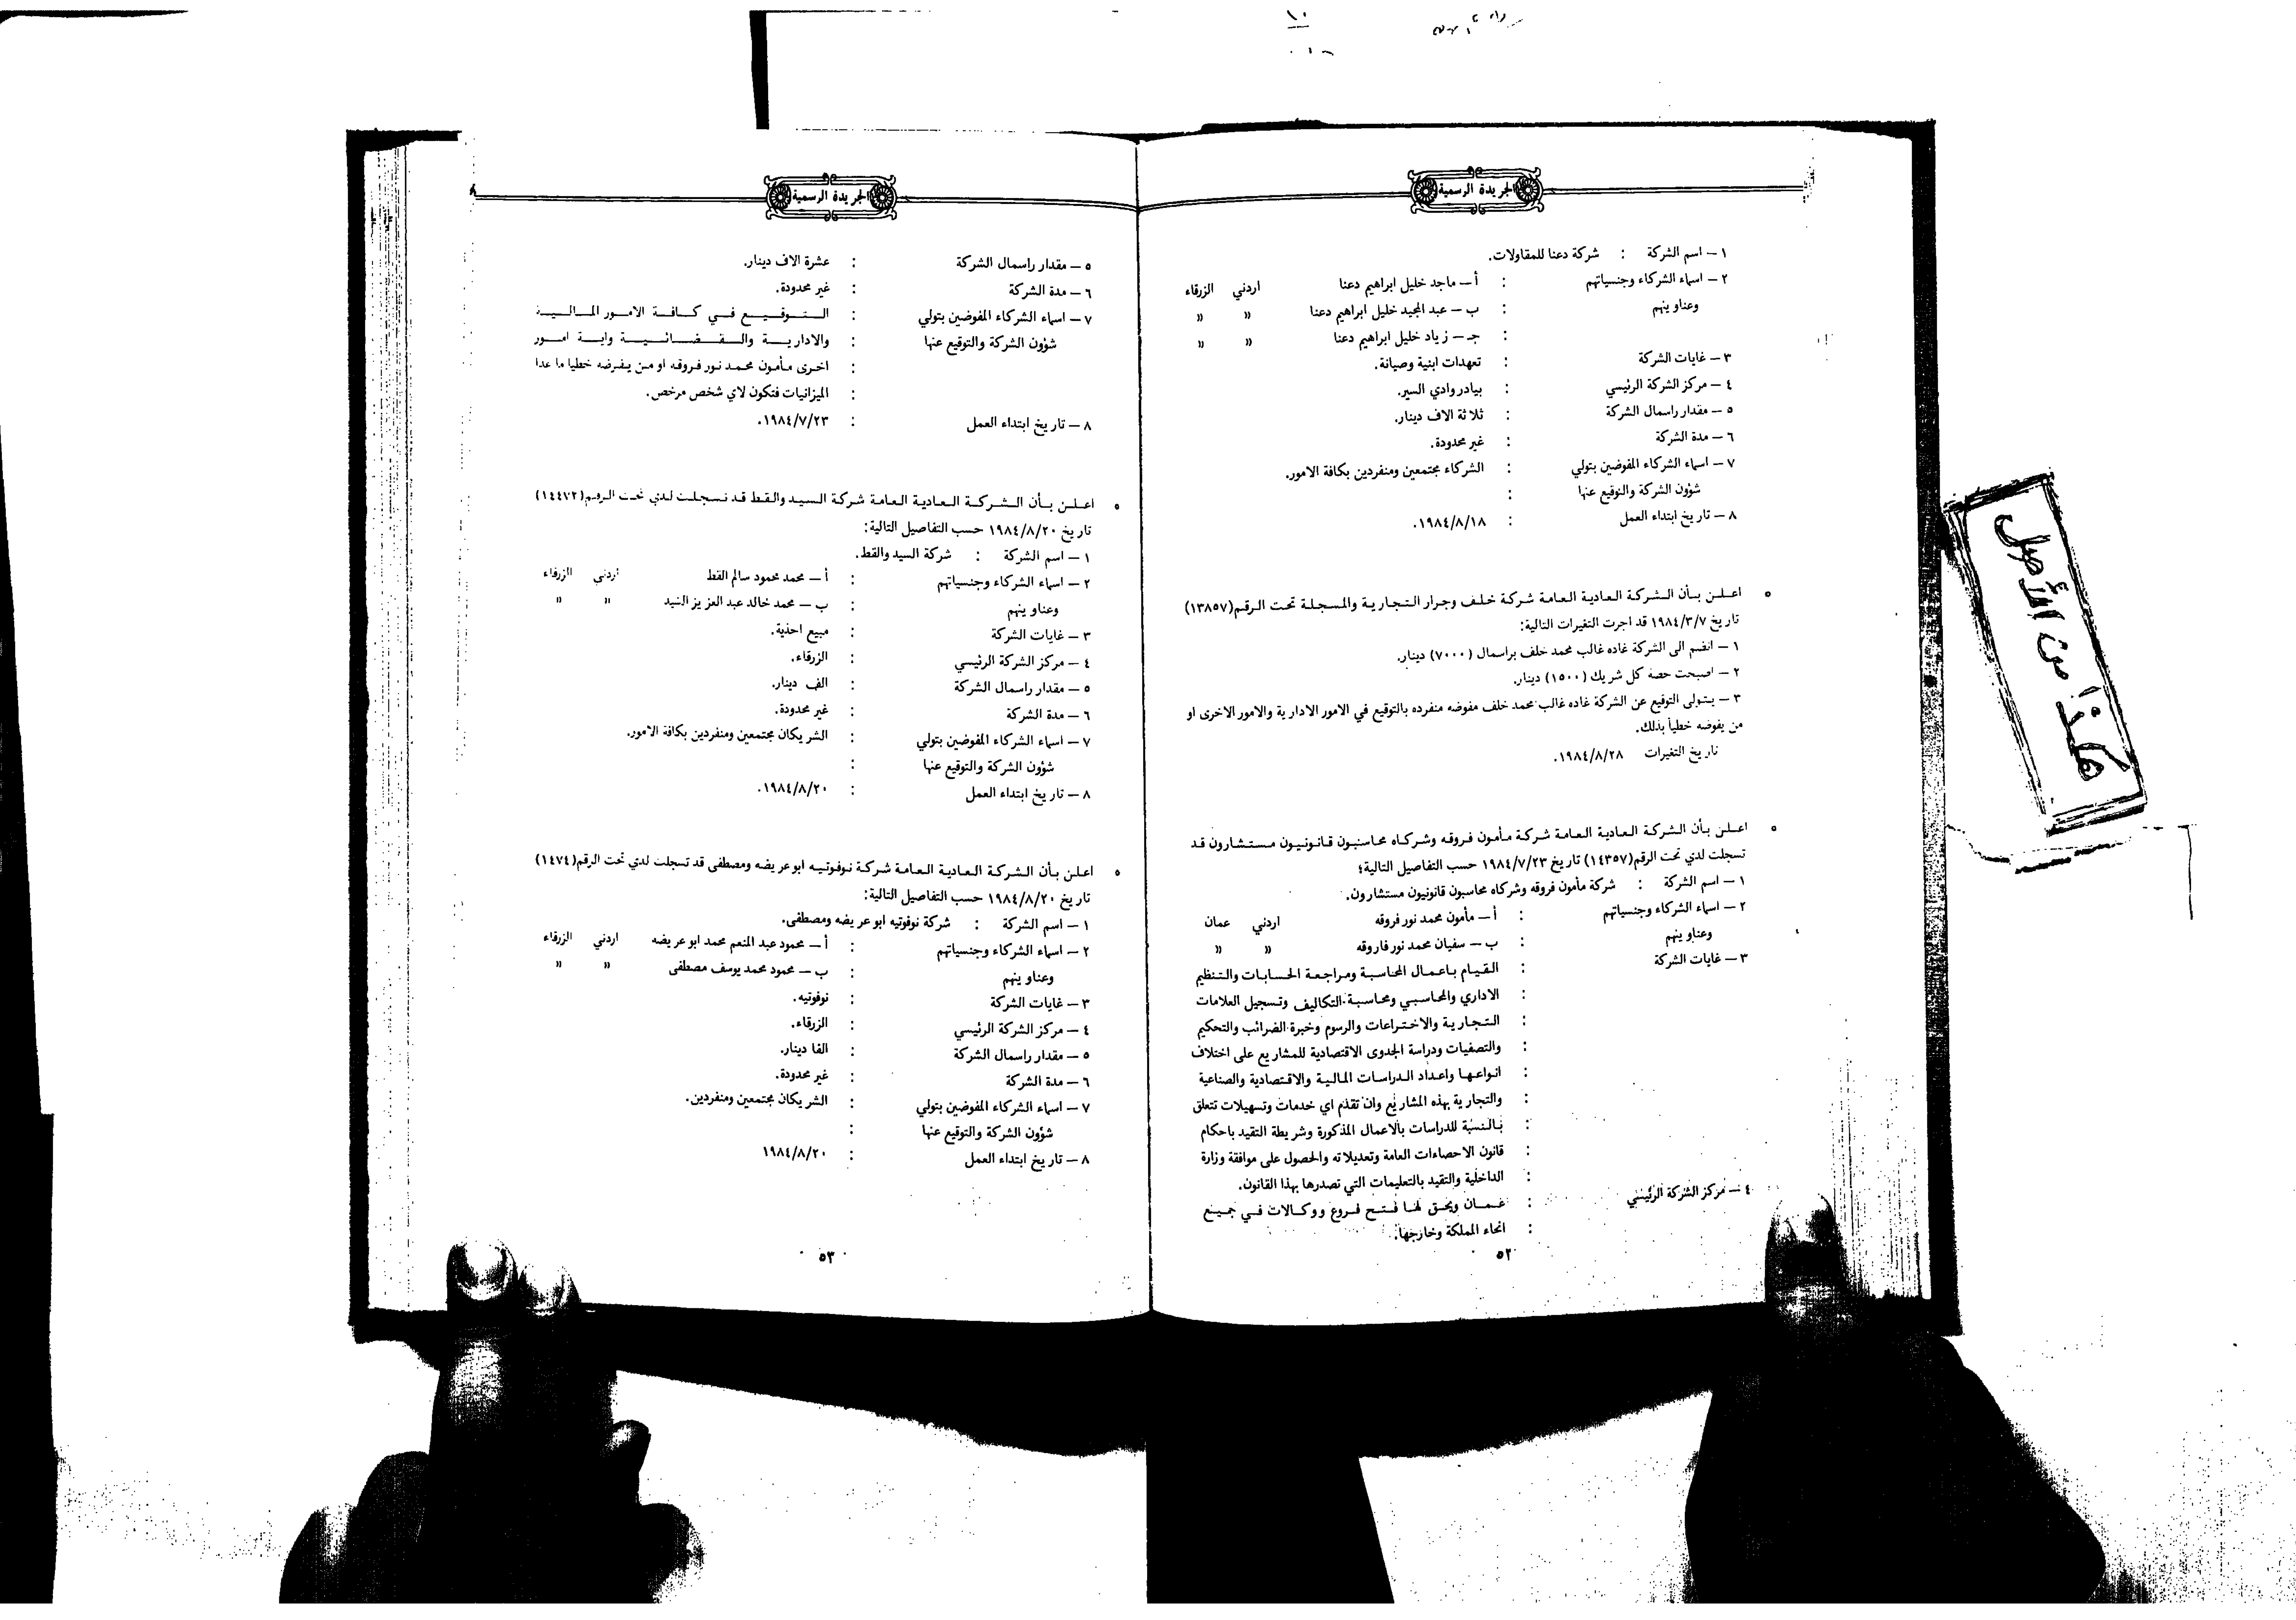 الجريدة الرسمية
١ — اسم الشركة : شركة دعنا للمقاولات.
٢ — اسماء الشركاء وجنسياتهم : أ — ماجد خليل ابراهيم دعنا اردني الزرقاء
وعناوينهم : ب — عبد المجيد خليل ابراهيم دعنا » »
: جـ — زياد خليل ابراهيم دعنا » »
٣ — غايات الشركة : تعهدات ابنية وصيانة.
٤ — مركز الشركة الرئيسي : بيادر وادي السير.
٥ — مقدار راسمال الشركة : ثلاثة الاف دينار.
٦ — مدة الشركة : غير محدودة.
٧ — اسماء الشركاء المفوضين بتولي : الشركاء مجتمعين ومنفردين بكافة الامور.
شؤون الشركة والتوقيع عنها :
٨ — تاريخ ابتداء العمل : ١٩٨٤/٨/١٨.
اعلن بأن الشركة العادية العامة شركة خلف وجرار التجارية والمسجلة تحت الرقم(١٣٨٥٧)
تاريخ ١٩٨٤/٣/٧ قد اجرت التغيرات التالية:
١ — انضم الى الشركة غاده غالب محمد خلف براسمال (٧٠٠٠) دينار.
٢ — اصبحت حصة كل شريك (١٥٠٠) دينار.
٣ — يتولى التوقيع عن الشركة غاده غالب محمد خلف مفوضه منفرده بالتوقيع في الامور الادارية والامور الاخرى او
من يفوضه خطياً بذلك.
تاريخ التغيرات ١٩٨٤/٨/٢٨.
اعلن بأن الشركة العادية العامة شركة مأمون فروقه وشركاه محاسبون قانونيون مستشارون قد
تسجلت لدي تحت الرقم(١٤٣٥٧) تاريخ ١٩٨٤/٧/٢٣ حسب التفاصيل التالية؛
١ — اسم الشركة : شركة مأمون فروقه وشركاه محاسبون قانونيون مستشارون.
٢ — اسماء الشركاء وجنسياتهم : أ — مأمون محمد نور فروقه اردني عمان
وعناوينهم : ب — سفيان محمد نور فاروقه » »
٣ — غايات الشركة : القيام باعمال المحاسبة ومراجعة الحسابات والتنظيم
: الاداري والمحاسبي ومحاسبة التكاليف وتسجيل العلامات
: التجارية والاختراعات والرسوم وخبرة الضرائب والتحكيم
: والتصفيات ودراسة الجدوى الاقتصادية للمشاريع على اختلاف
: انواعها واعداد الدراسات المالية والاقتصادية والصناعية
: والتجارية بهذه المشاريع وان تقدم اي خدمات وتسهيلات تتعلق
: بالنسبة للدراسات بالاعمال المذكورة وشريطة التقيد باحكام
: قانون الاحصاءات العامة وتعديلاته والحصول على موافقة وزارة
: الداخلية والتقيد بالتعليمات التي تصدرها بهذا القانون.
٤ — مركز الشركة الرئيسي : عمان ويحق لها فتح فروع ووكالات في جميع
: انحاء المملكة وخارجها.
٥٢
الجريدة الرسمية
٥ — مقدار راسمال الشركة : عشرة الاف دينار.
٦ — مدة الشركة : غير محدودة.
٧ — اسماء الشركاء المفوضين بتولي : التوقيع في كافة الامور المالية
شؤون الشركة والتوقيع عنها : والادارية والقضائية واية امور
: اخرى مأمون محمد نور فروقه او من يفوضه خطيا ما عدا
: الميزانيات فتكون لاي شخص مرخص.
٨ — تاريخ ابتداء العمل : ١٩٨٤/٧/٢٣.
اعلن بأن الشركة العادية العامة شركة السيد والقط قد تسجلت لدي تحت الرقم(١٤٤٧٢)
تاريخ ١٩٨٤/٨/٢٠ حسب التفاصيل التالية:
١ — اسم الشركة : شركة السيد والقط.
٢ — اسماء الشركاء وجنسياتهم : أ — محمد محمود سالم القط اردني الزرقاء
وعناوينهم : ب — محمد خالد عبد العزيز السيد » »
٣ — غايات الشركة : مبيع احذية.
٤ — مركز الشركة الرئيسي : الزرقاء.
٥ — مقدار راسمال الشركة : الف دينار.
٦ — مدة الشركة : غير محدودة.
٧ — اسماء الشركاء المفوضين بتولي : الشريكان مجتمعين ومنفردين بكافة الامور.
شؤون الشركة والتوقيع عنها :
٨ — تاريخ ابتداء العمل : ١٩٨٤/٨/٢٠.
اعلن بأن الشركة العادية العامة شركة نوفوتيه ابوعريضه ومصطفى قد تسجلت لدي تحت الرقم(١٤٧٤)
تاريخ ١٩٨٤/٨/٢٠ حسب التفاصيل التالية:
١ — اسم الشركة : شركة نوفوتيه ابوعريضه ومصطفى.
٢ — اسماء الشركاء وجنسياتهم : أ — محمود عبد المنعم محمد ابوعريضه اردني الزرقاء
وعناوينهم : ب — محمود محمد يوسف مصطفى » »
٣ — غايات الشركة : نوفوتيه.
٤ — مركز الشركة الرئيسي : الزرقاء.
٥ — مقدار راسمال الشركة : الفا دينار.
٦ — مدة الشركة : غير محدودة.
٧ — اسماء الشركاء المفوضين بتولي : الشريكان مجتمعين ومنفردين.
شؤون الشركة والتوقيع عنها :
٨ — تاريخ ابتداء العمل : ١٩٨٤/٨/٢٠
٥٣
هكذا من الأصل